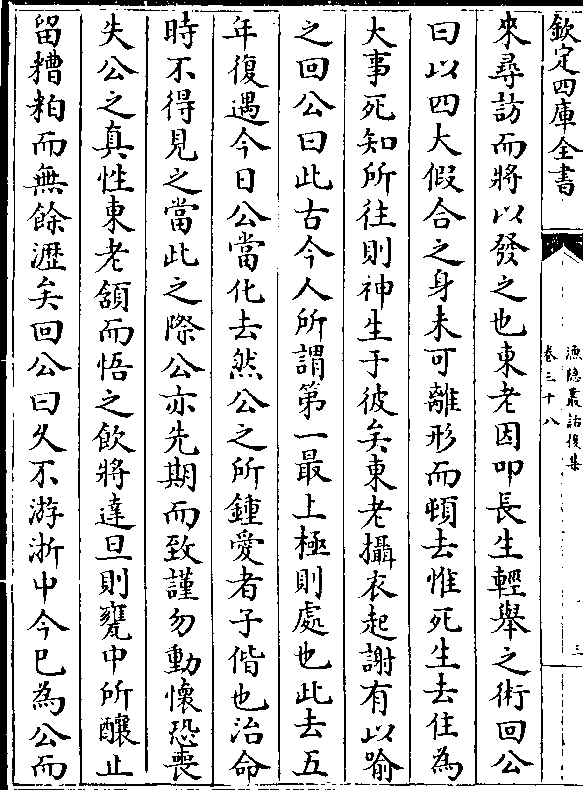 欽定四庫全書
漁隱叢話後集
卷三十八
三
來尋訪而將以發之也東老因叩長生輕舉之術回公
曰以四大假合之身未可離形而頓去惟死生去住為
大事死知所往則神生于彼矣東老攝衣起謝有以喻
之回公曰此古今人所謂第一最上極則處也此去五
年復遇今日公當化去然公之所鍾愛者子偕也治命
時不得見之當此之際公亦先期而致謹勿動懷恐喪
失公之真性東老頷而悟之飲將達旦則甕中所釀止
留糟粕而無餘瀝矣回公曰久不游浙中今已為公而